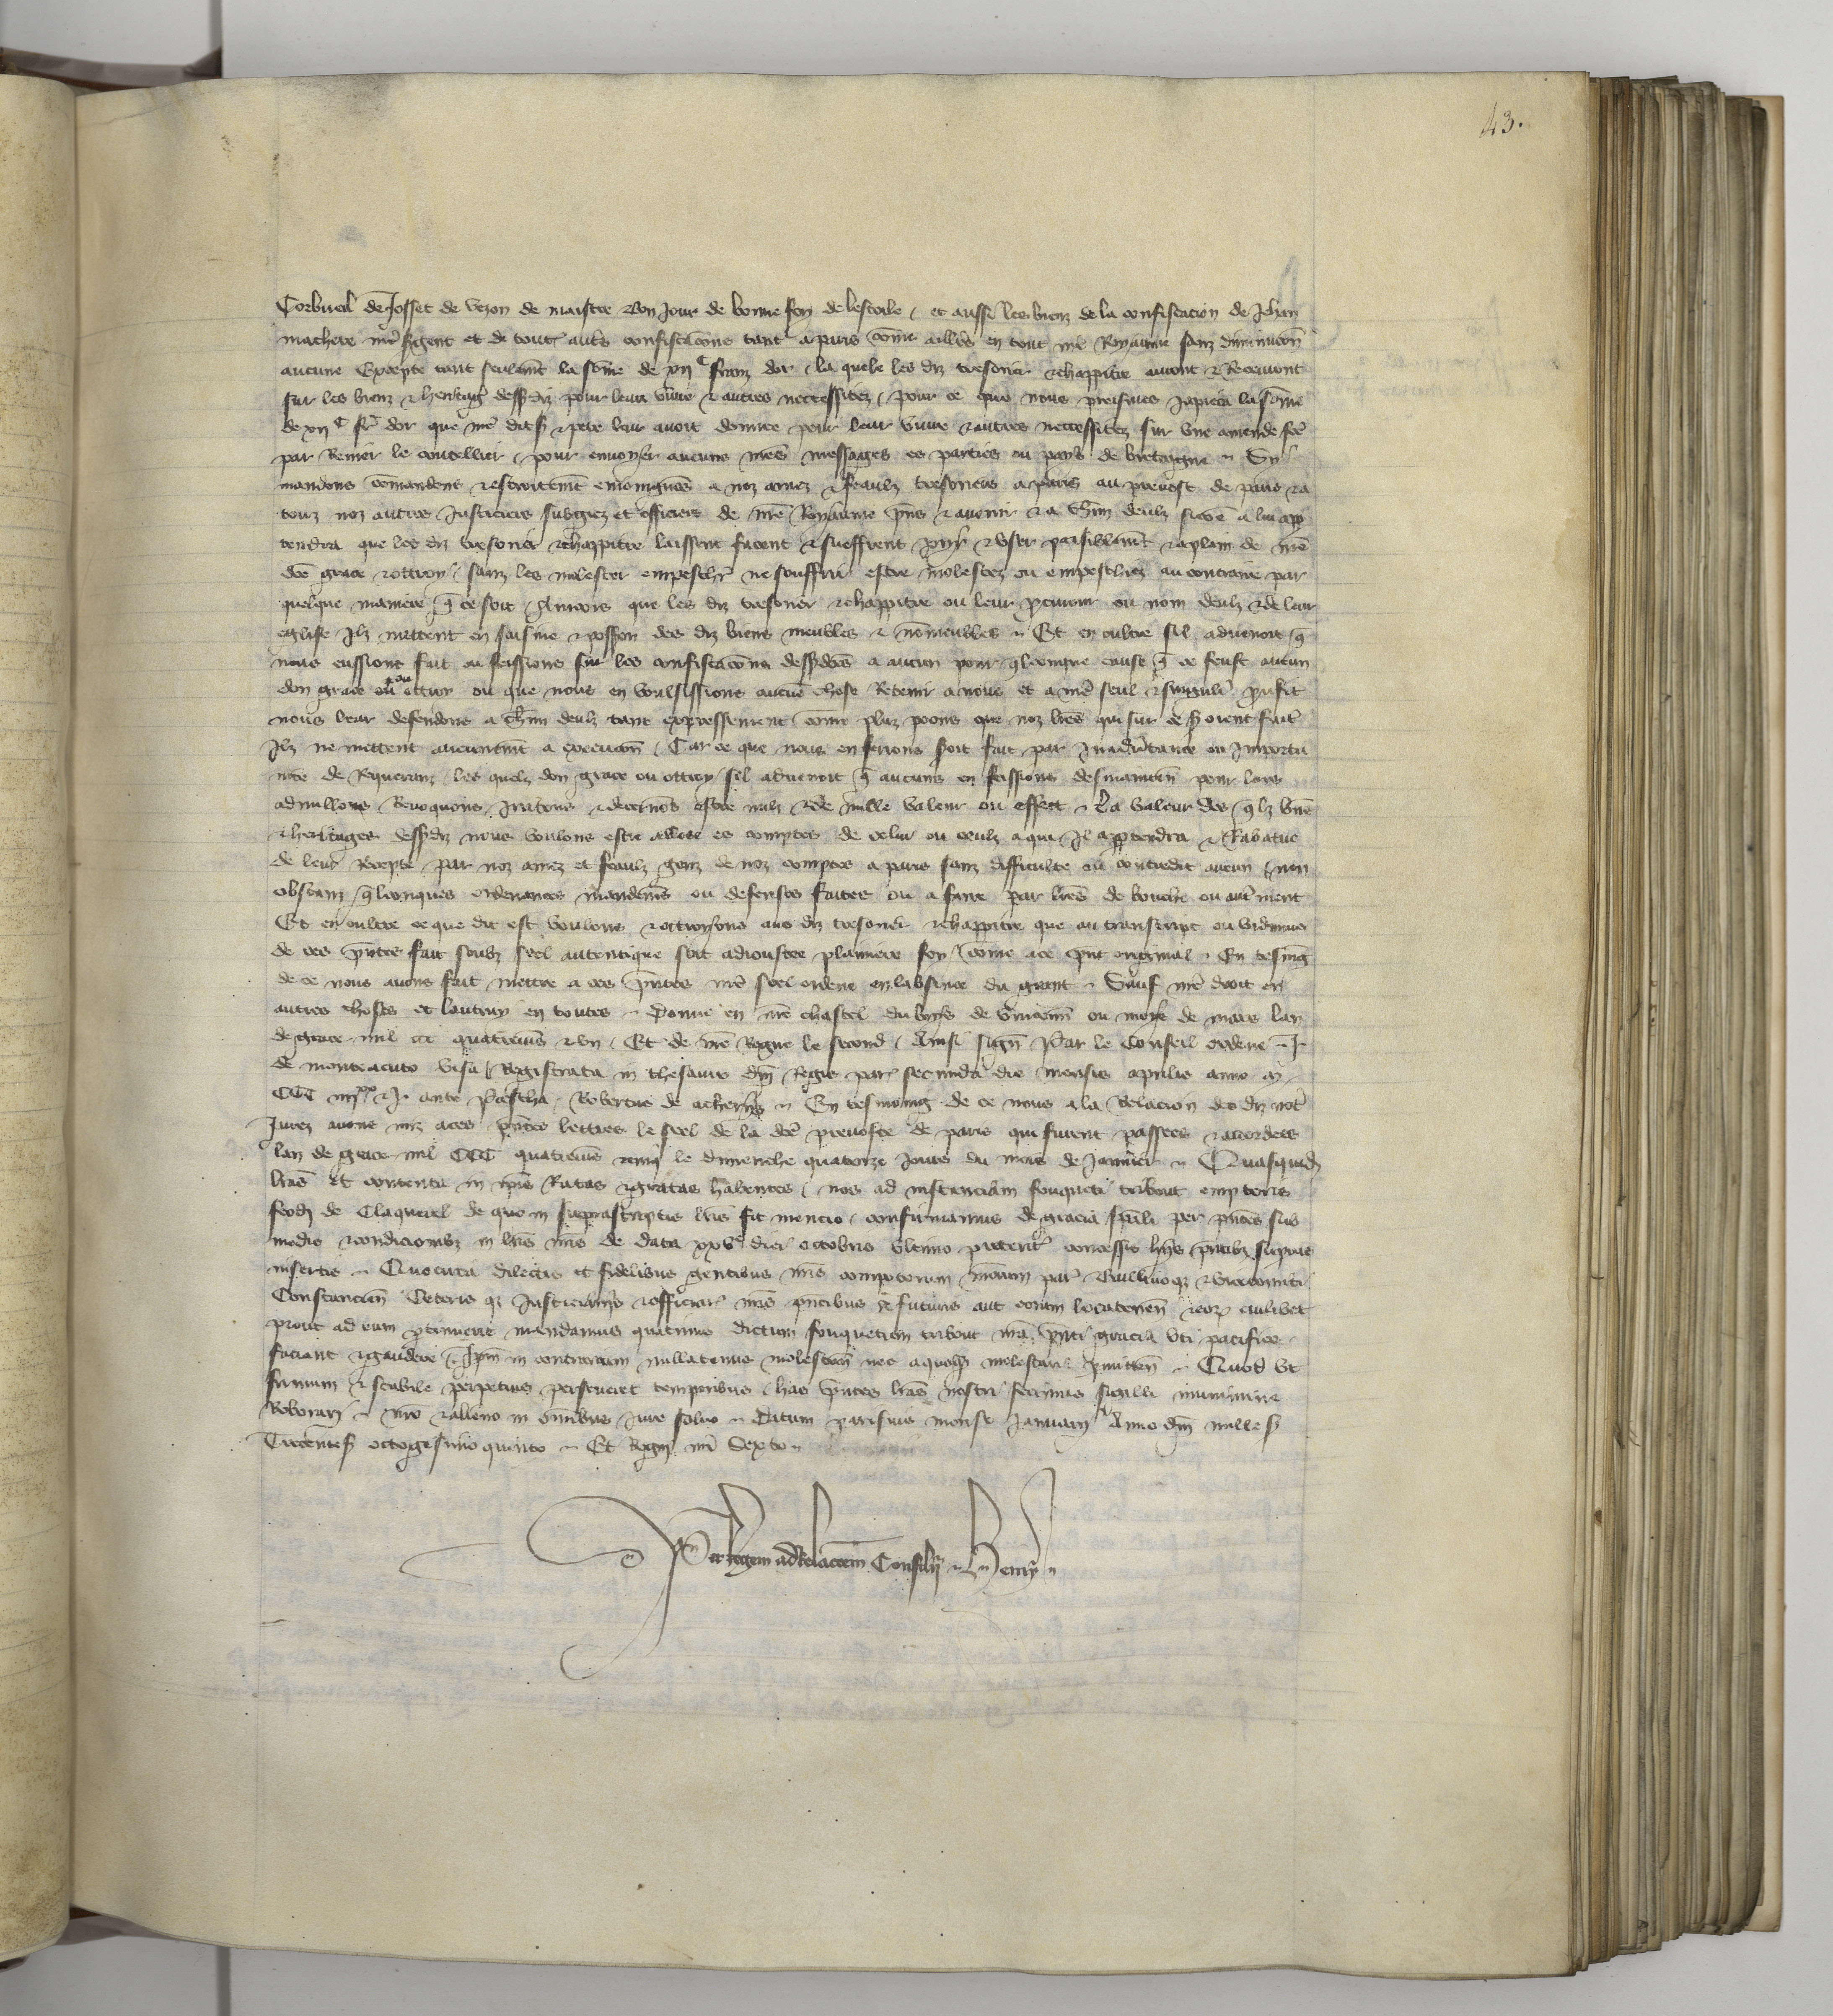 43.
Corbueil de Josset de vezon de maistre bon Jour de bonne foy de lescole / et aussi les biens de la confiscacion de Jehan
machere nr̃e sergent et de tout auts̃ confiscac̃ons tant a paris com̃e aillrs̃ en tout nr̃e Royaume sanz diminuc̃on
aucune Excepte tant seulemt̃ la som̃e de xij c frans dor / la quele les diz tresorier & chappitre auront & Receuront
sur les biens & heritag̃ dessusdiz pour leur viure & autres neccessitez / pour ce que nous preismes Japieca la som̃e
de xij c fr̃ dor que nr̃e dit s & pere leur auoit donnee pour leur viure & autres neccessitez sur vne amende fc̃e
par Renier le coutellier / pour enuoyer aucuns nr̃es messages es parties ou pays de bretaigne Sy
mandons com̃andons & estroitemt̃ enioignons a noz amez & feaulx tresoriers a paris au preuost de paris & a
touz noz autres Justiciers subgiez et officiers de nr̃e Royaume pñs & auenir & a chũn deulz si com̃e a lui app
tendra que les diz tresorier & chappitre laissent facent & sueffrent Joyr & vser paisiblemt̃ & aplain de nr̃e
dc̃e grace & ottroy / sanz les molester empeschr̃ ne souffrir estre molestez ou empeschiez au contraire par
quelque maniere q̃ ce soit / Aincois que les diz tresorier & chappitre ou leur pcureur ou nom deulz & de leur
eglise Ilz mettent en saisine & possess̃on des diz biens meubles & nõmeubles Et en oultre sil aduenoit q̃
nous eussions fait ou feissions sur les confiscac̃ons dessusdc̃es a aucun pour q̃lconque cause q̃ ce feust aucun
don grace ou ottroy ou que nous en voulsissions aucũe chose Retenir a nous et a nr̃e seul & singulr̃ proufit
nous leur defendons a chũn deulz tant expressement com̃e plus poons que noz lr̃es qui sur ce s oient fait
Ilz ne mettent aucunemt̃ a execuc̃on / Car ce que nous en ferions soit fait par Inaduertance ou Importu
nite de Requerans / les quelx don grace ou ottroy sil aduenoit q̃ aucuns en feissions desmainten̄ pour lors
adnullons Reuoquons Irritons & decernons estre nulz & de nulle valeur ou effect La valeur des q̃lz biens
& heritages dessusdiz nous voulons estre allouee es comptes de celui ou ceulz a qui Il apptendra & Rabatue
de leur Recepte par noz amez et feaulx gens de noz comptes a paris sanz difficulte ou contredit aucun / non
obstans q̃lconques ordenances mandem̃s ou defenses faites ou a faire par lr̃es de bouche ou autrement
Et en oultre ce que dit est voulons & ottroyons aus diz tresorier & chappitre que au transcript ou vidimus
de ces pñtes fait soubz seel autentique soit adioustee planiere foy com̃e a ce pñt original En tesmg
de ce nous auons fait mettre a ces pñtes nr̃e seel ordene en labsence du grant Sauf nr̃e droit en
autres choses et lautruy en toutes Donne en nr̃e chastel du boys de vincenn̄ ou moys de mars lan
de grace mil ccc quatreuins & vn / Et de nr̃e Regne le second / Ainsi sign̄ Par le Conseil ordene J.
de monteacuto visa / Registrata in thesauro dñi Regis par̃ secunda die mensis aprilis anno m
CCC iiij xx & J. ante Pascha Robertus de acheriis En tesmoing de ce nous a la Relacion des diz not̃
Jurez auons mis a ces pñtes lettres le seel de la dc̃e preuoste de paris qui furent passees & accordees
lan de grace mil CCC quatreuins & cinq le dimenche quatorze Jours du mois de Januier Quasquid
lr̃as et contenta in ip̃is Ratas & gratas habentes / nos ad instanciam fouqueti tribout emptoris
feodi de Claquerel de quo in suprascriptis lr̃is fit mencio / confirmamus de gracia sp̃ali per pñtes sub
modis & condicionibz in lr̃is nr̃is de data xxv e diei octobris vltimo preterit̃ concessis hiis pñtibz superius
insertis Quocirca dilectis et fidelibus gentibus nr̃is compotorum nr̃orum par̃ Bailliuoqz & vicecomiti
Constancien̄ Ceteris qz Justiciariis & officiar̃ nr̃is pñtibus & futuris aut eorum locatenen̄ & eorz cuilibet
prout ad eum ptinuerit mandamus quatinus dictum fouquetum tribout nr̃a pñti gracia vti pacifice
faciant & gaudere / Ip̃m in contrarium nullatenus molestan̄ nec a quoqz molestari pmitten̄ Quod vt
firmum & stabile perpetuis perseueret temporibus / has pñtes lr̃as nostri fecimus sigilli munimine
Roborari nr̃o & alieno in om̃ibus Jure saluo Datum parisius mense Januarij Anno dñi milles
Trecentes octogesimo quinto Et Regni nr̃i Sexto
Per regem ad Relacõem Consilij Henry